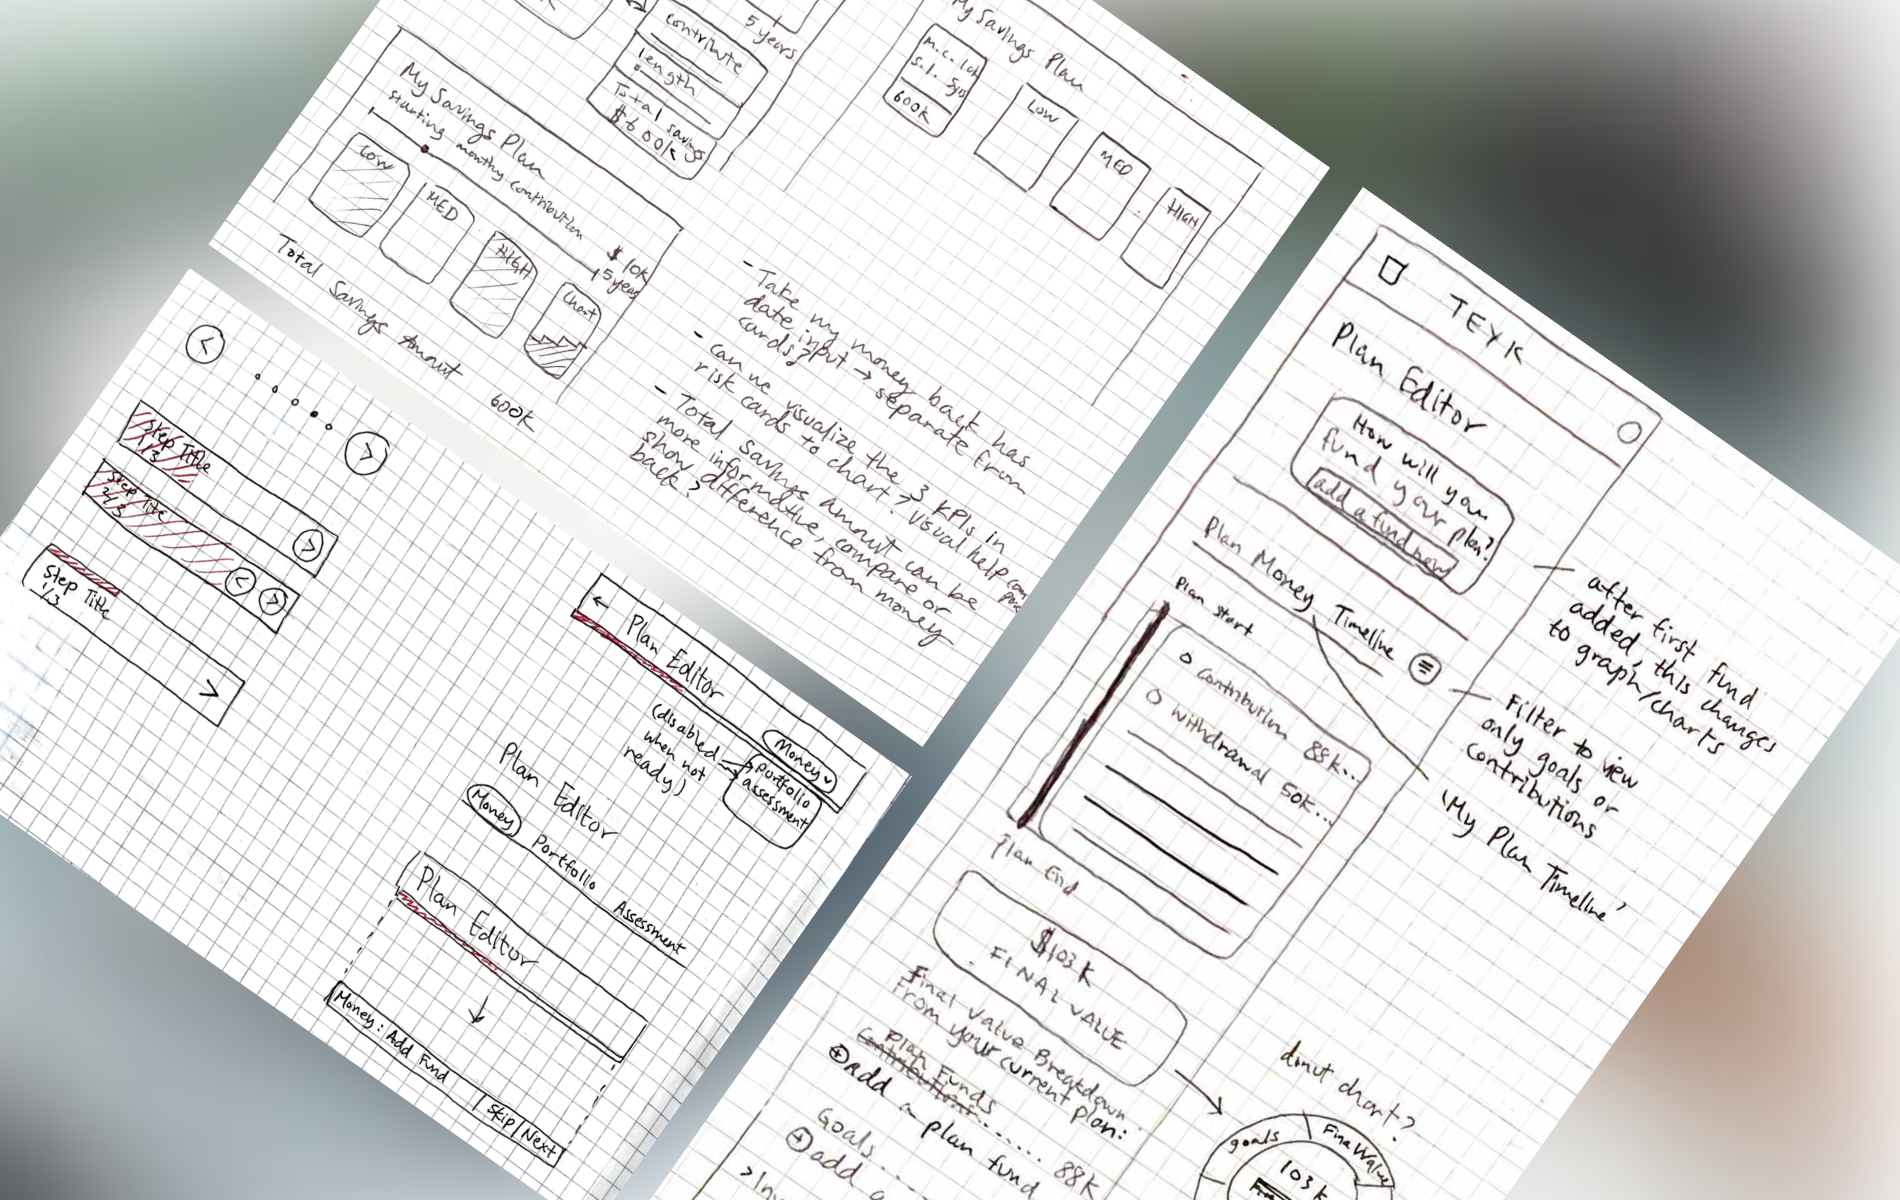 5 years
contribute
length
Total savings
$600K
My Savings Plan
starting monthly contribution
$10K
15 years
LOW
MED
HIGH
Chart
Total Savings Amount 600K
My Savings Plan
m.c. 10k
S.l. 5yrs
600K
LOW
MED
HIGH
- Take my money back has
date input → separate from
cards?
- can we visualize the 3 KPIs in
risk cards to chart? → visual help
- Total Savings amount can be
more informative, compare or
show difference from money
back?
Step Title
1/3
Step Title
2/3
Step Title
1/3
Plan Editor
Money
portfolio
assessment
(disabled
when not
ready)
Plan Editor
Money Portfolio Assessment
Plan Editor
Money: Add Fund | Skip | Next
TEYK
Plan Editor
How will you
fund your plan?
add a fund now
after first fund
added, this changes
to graph/charts
Plan Money Timeline
Filter to view
only goals or
contributions
'My Plan Timeline'
Plan start
Contribution 88K...
Withdrawal 50K...
Plan End
$103K
FINAL VALUE
Final Value Breakdown
From your current plan:
Plan Funds
Contributions ..... 88K
add a plan fund
Goals ...
add a
donut chart?
goals
Final Value
103K